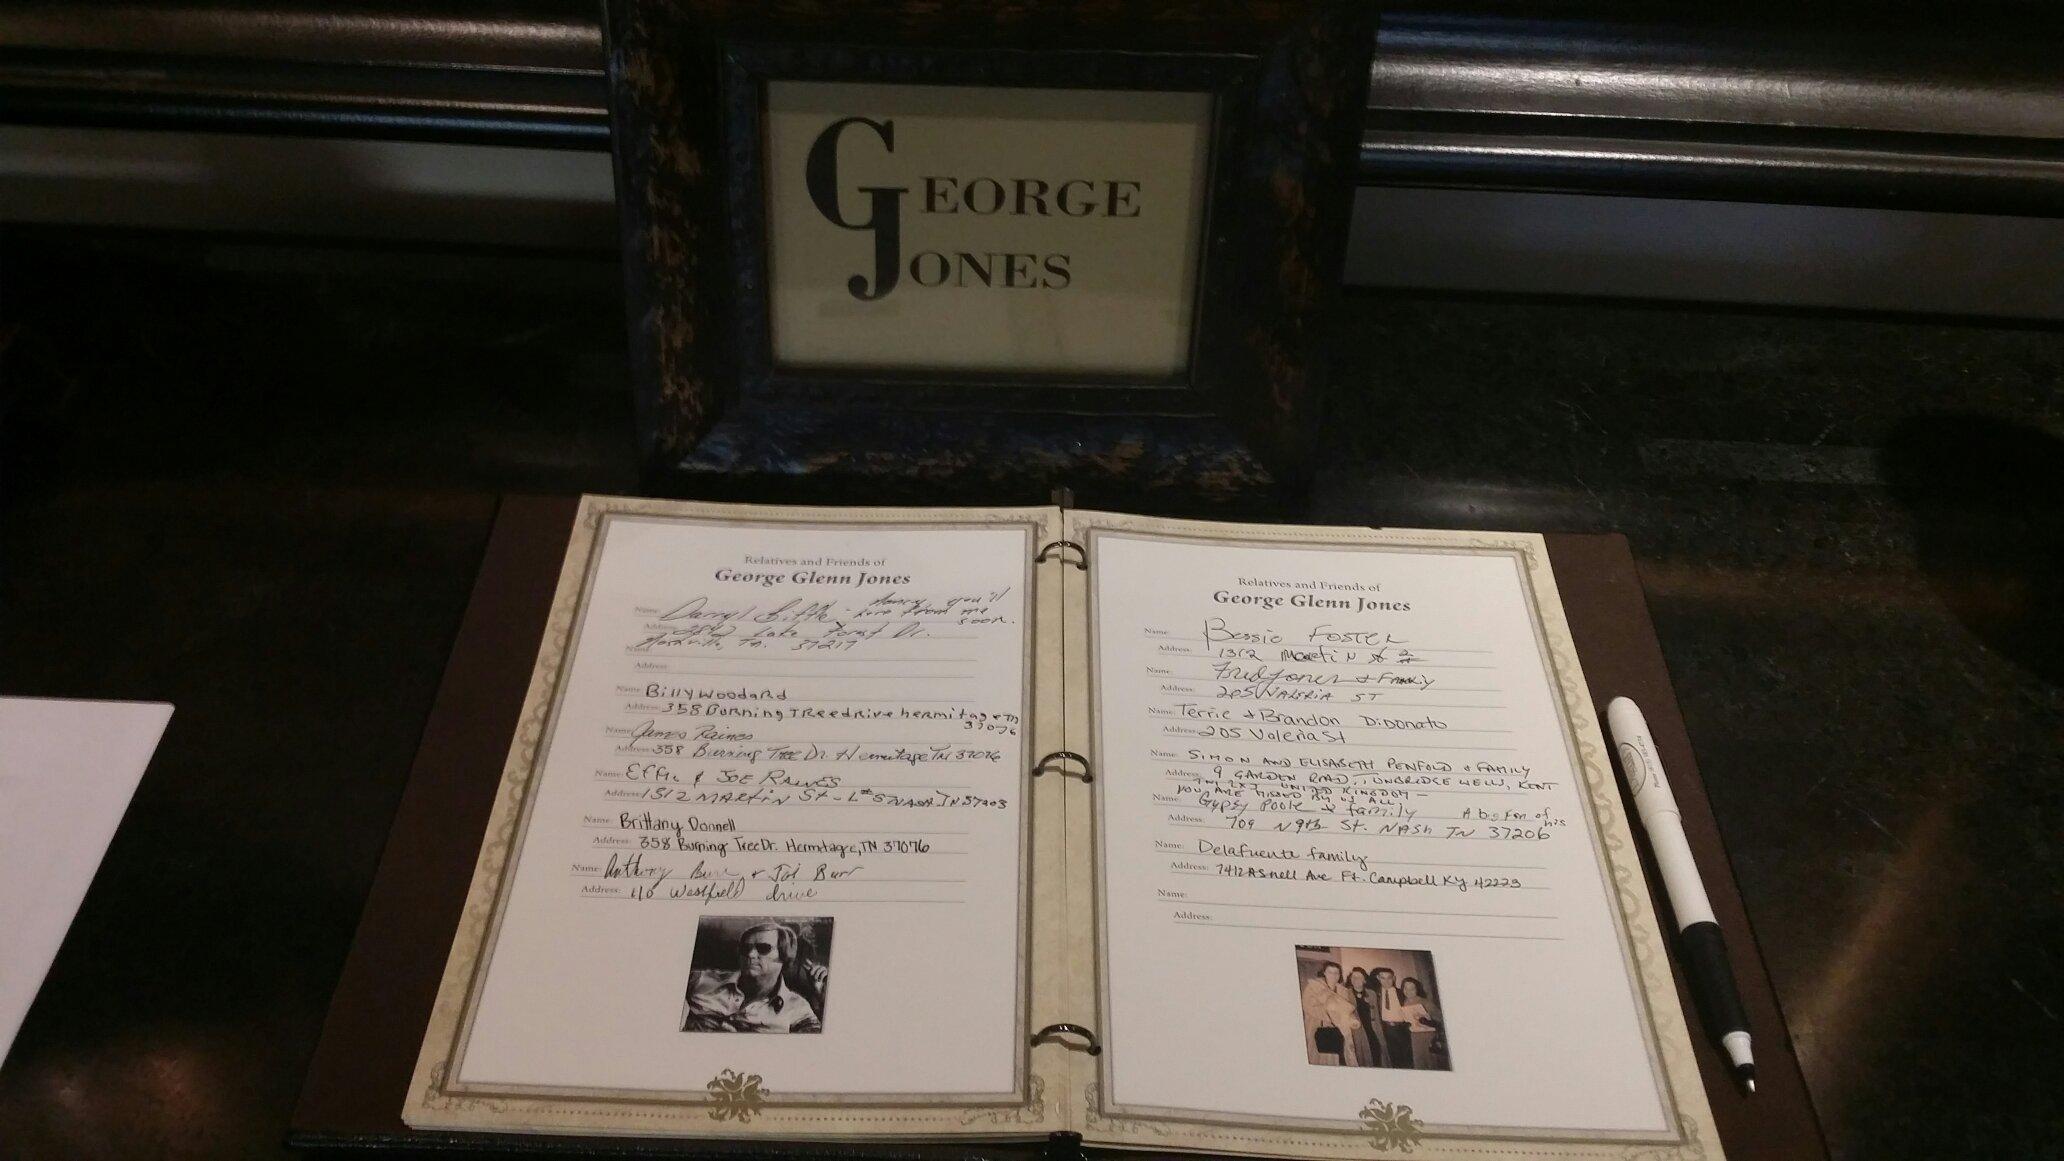 GEORGE
JONES
Relatives and Friends of
George Glenn Jones
Name: Darryl - Honey you'll
soon.
Address: 3842 Lake Forest Dr.
Nashville, Tn. 37217
Name:
Address:
Name: Billy Woodard
Address: 358 Burning Tree drive hermitage TN
37076
Name: James Raines
Address: 358 Burning Tree Dr. Hermitage TN 37076
Name: Effie & JOE RAINES
Address: 1312 MARTIN St - TN 37203
Name: Brittany Donnell
Address: 358 Burning Tree Dr. Hermitage, TN 37076
Name: Anthony Burr + Burr
Address: 110 Westfield drive
Relatives and Friends of
George Glenn Jones
Name: Bessie FOSTER
Address: 1312 Martin St
Name: Fred Jones & Family
Address: 205 VALERIA ST
Name: Terrie & Brandon DiDonato
Address: 205 Valeria St
Name: SIMON AND ELISABETH PENFOLD & FAMILY
Address: 9 GARDEN ROAD, TUNBRIDGE WELLS, KENT
UNITED KINGDOM -
YOU ARE MISSED BY US ALL
Name: Gypsy Poole & family A big fan of
his
Address: 709 N 9th St. NASH TN 37206
Name: Delafuente family
Address: 7412 Ave Ft. Campbell KY 42223
Name:
Address: